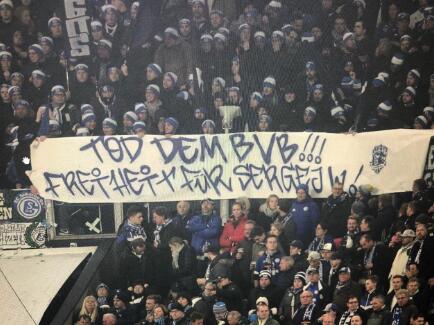 TOD DEM BVB!!!
FREIHEIT FÜR SERGEJ W.!